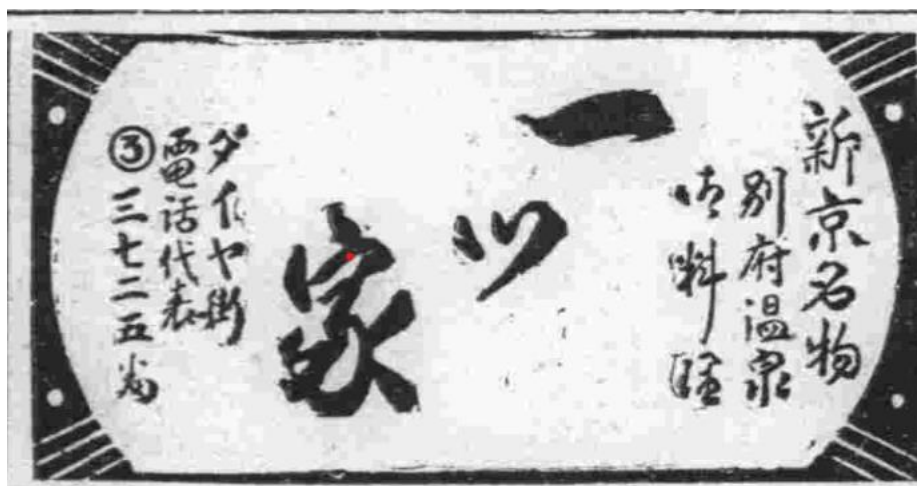 新京名物
別府温泉
御料理
一ツ家
ダイヤ街
電話代表
③三七二五番